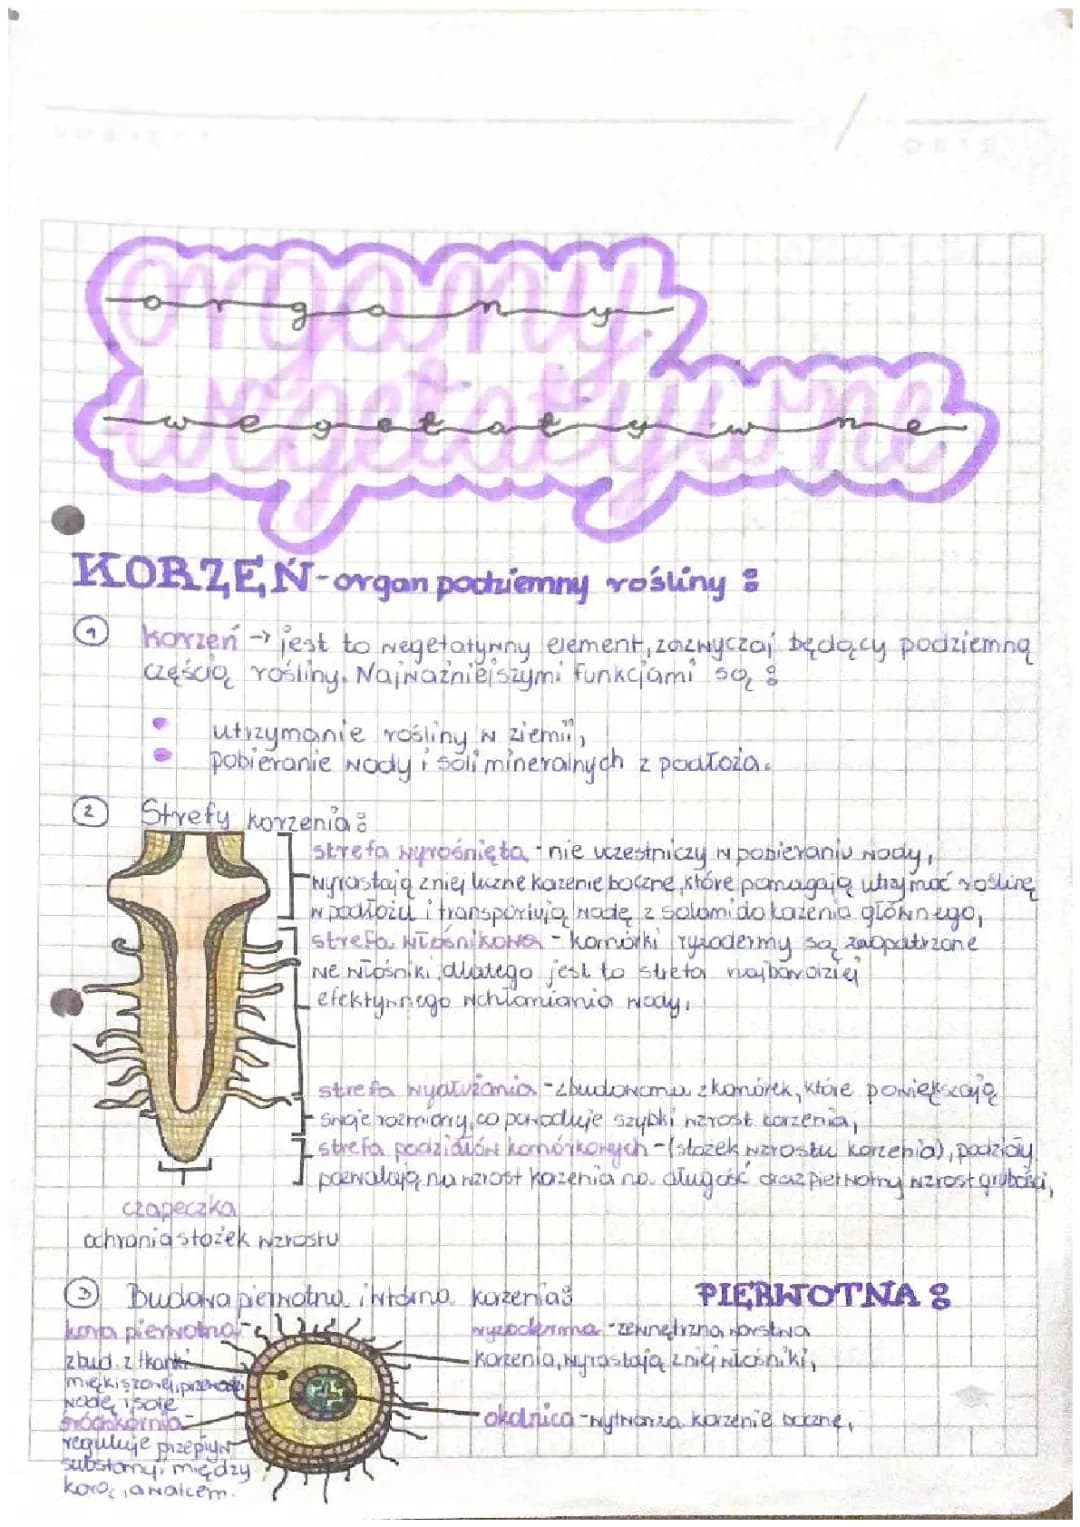 organy
wegetatywne
KORZEŃ-organ podziemny rośliny:
1 korzeń → jest to wegetatywny element, zazwyczaj będący podziemną
częścią rośliny. Najważniejszymi funkcjami są:
• utrzymanie rośliny w ziemii,
• pobieranie wody i soli mineralnych z podłoża.
2 Strefy korzenia:
strefa wyrośnięta - nie uczestniczy w pobieraniu wody,
wyrastają z niej liczne korzenie boczne, które pomagają utrzymać roślinę
w podłożu i transportują wodę z solami do korzenia głównego,
strefa włośnikowa - komórki ryzodermy są zaopatrzone
we włośniki, dlatego jest to strefa najbardziej
efektywnego wchłaniania wody,
strefa wydłużania - zbudowana z komórek, które powiększają
swoje rozmiary, co powoduje szybki wzrost korzenia,
strefa podziałów komórkowych - (stożek wzrostu korzenia), podziały
pozwalają na wzrost korzenia na długość oraz pierwotny wzrost grubości,
czapeczka
ochrania stożek wzrostu
3 Budowa pierwotna i wtórna korzenia:
PIERWOTNA:
kora pierwotna-
zbud. z tkanki
miękiszowej, przewodzi
wodę i sole
śródskórnia-
reguluje przepływ
substancji między
korą, a walcem.
ryzoderma - zewnętrzna warstwa
korzenia, wyrastają z niej włośniki,
okolnica - wytwarza korzenie boczne,